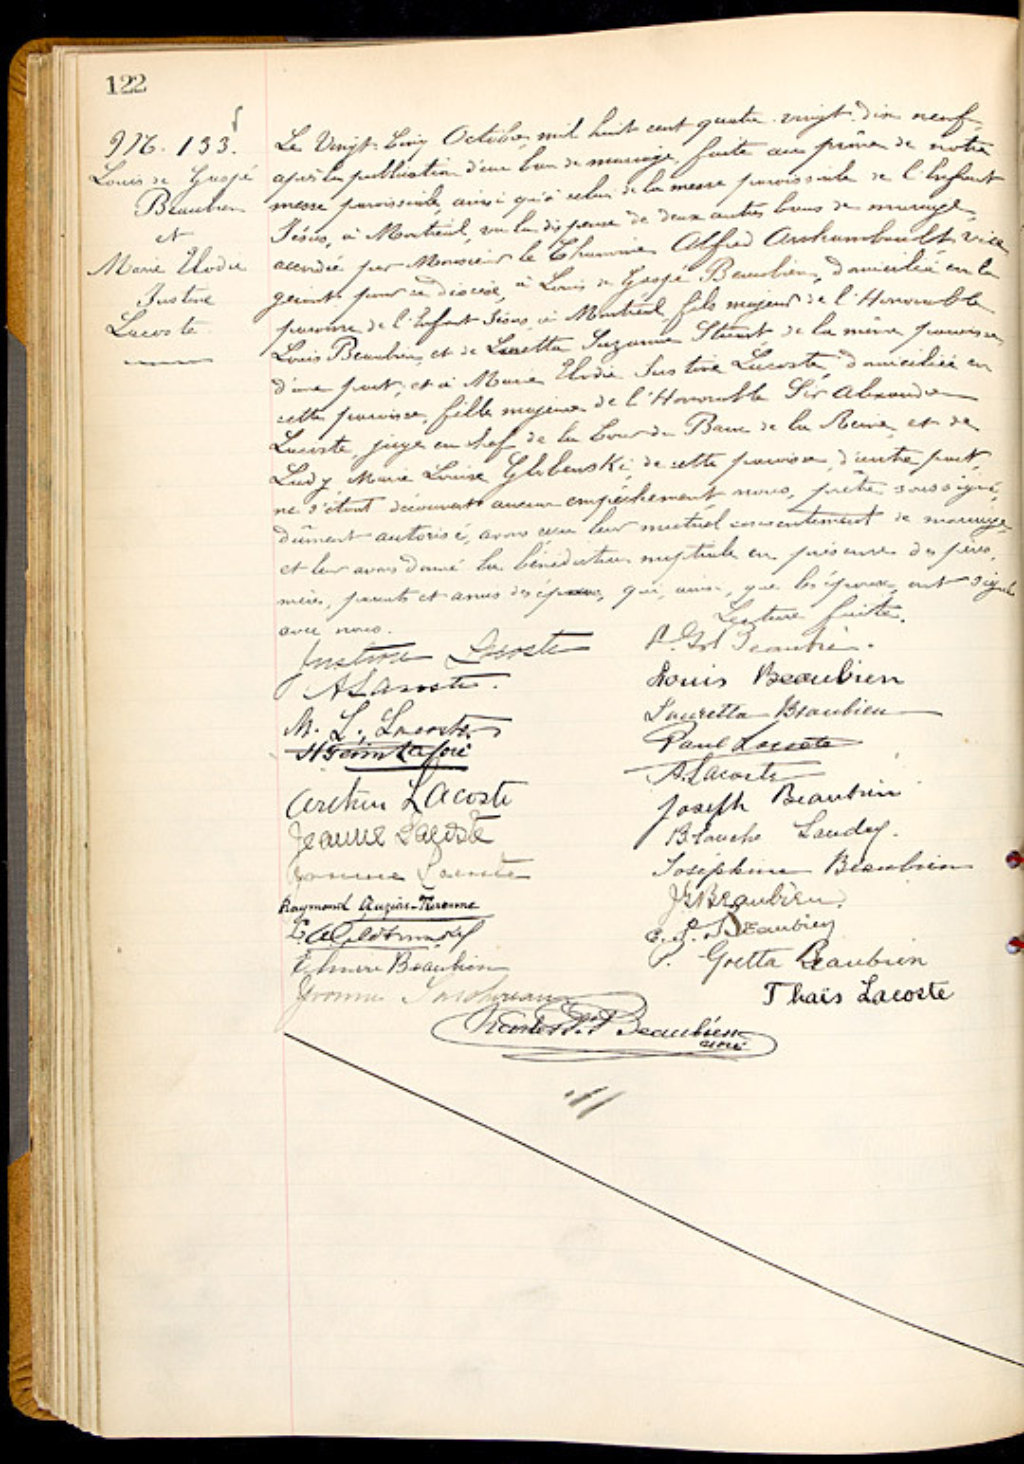 122
M. 133.
Louis de Gaspé
Beaubien
et
Marie Elodie
Justine
Lacoste
Le Vingt-Cinq Octobre, mil huit cent quatre-vingt-dix neuf,
après la publication d'un ban de mariage, faite au prône de notre
messe paroissiale, ainsi qu'à celui de la messe paroissiale de l'Enfant
Jésus, à Montréal, vu la dispense de deux autres bans de mariage,
accordée par Monsieur le Chanoine Alfred Archambault, vice
gérant pour ce diocèse, à Louis de Gaspé Beaubien, domicilié en la
paroisse de l'Enfant Jésus, à Montréal, fils majeur de l'Honorable
Louis Beaubien, et de Lauretta Suzanne Stuart de la même paroisse,
d'une part, et à Marie Elodie Justine Lacoste, domiciliée en
cette paroisse, fille majeure de l'Honorable Sir Alexandre
Lacoste, juge en chef de la Cour du Banc de la Reine, et de
Lady Marie Louise Globenski, de cette paroisse, d'autre part,
ne s'étant découvert aucun empêchement nous, prêtre soussigné,
dûment autorisé, avons reçu leur mutuel consentement de mariage,
et leur avons donné la bénédiction nuptiale en présence des pères,
mères, parents et amis des époux, qui, ainsi, que les époux, ont signé
avec nous. Lecture faite.
Justine Lacoste
Beaubien
A Lacoste.
Louis Beaubien
M. L. Lacoste
Lauretta Beaubien
Paul Lacoste
A. Lacoste
Arthur Lacoste
Joseph Beaubien
Jeanne Lacoste
Blanche Landry.
Yvonne Lacoste
Joséphine Beaubien
Raymond Auzias-Turenne
Beaubien
Beaubien
Beaubien
P. Gretta Beaubien
Yvonne
Thaïs Lacoste
Beaubien
curé